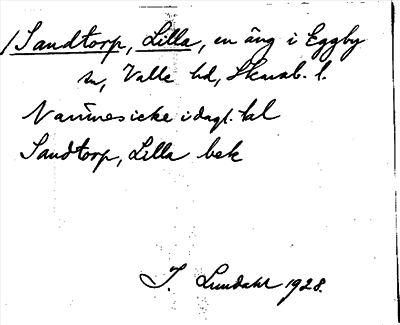 /Sandtorp, Lilla, en äng i Eggby
sn, Valle hd, Skarab. l.
Namnes icke i dagl. tal
Sandtorp, Lilla bek
I. Lundahl 1928.